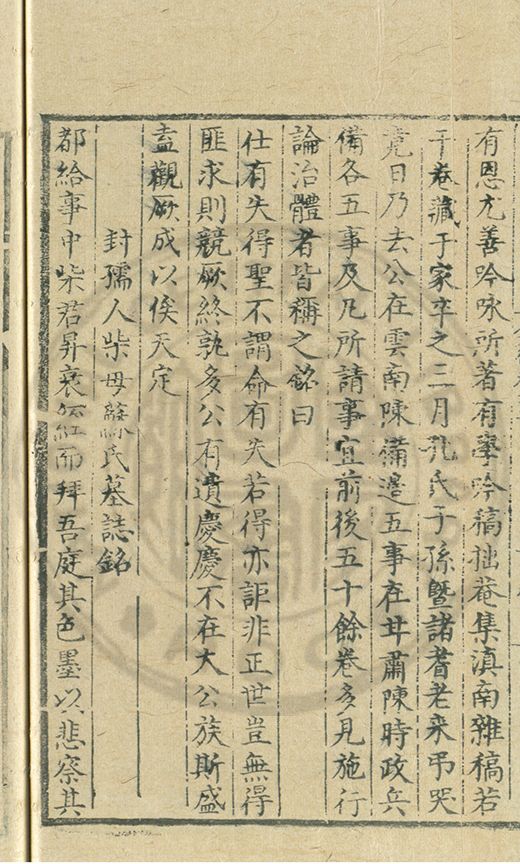 有恩尤善吟咏所著有學吟稿拙菴集滇南雜稿若
于卷藏于家卒之二月孔氏子孫暨諸耆老来弔哭
竟日乃去公在雲南陳備邊五事在甘肅陳時政兵
備各五事及凡所請事宜前後五十餘卷多見施行
論治體者皆稱之銘曰
仕有失得聖不謂命有失若得亦詎非正世豈無得
匪求則競厥終孰多公有遺慶慶不在大公族斯盛
盍觀厥成以俟天定
封孺人柴母蘇氏墓誌銘
都給事中柴君昇衰絰而拜吾庭其色墨以悲察其